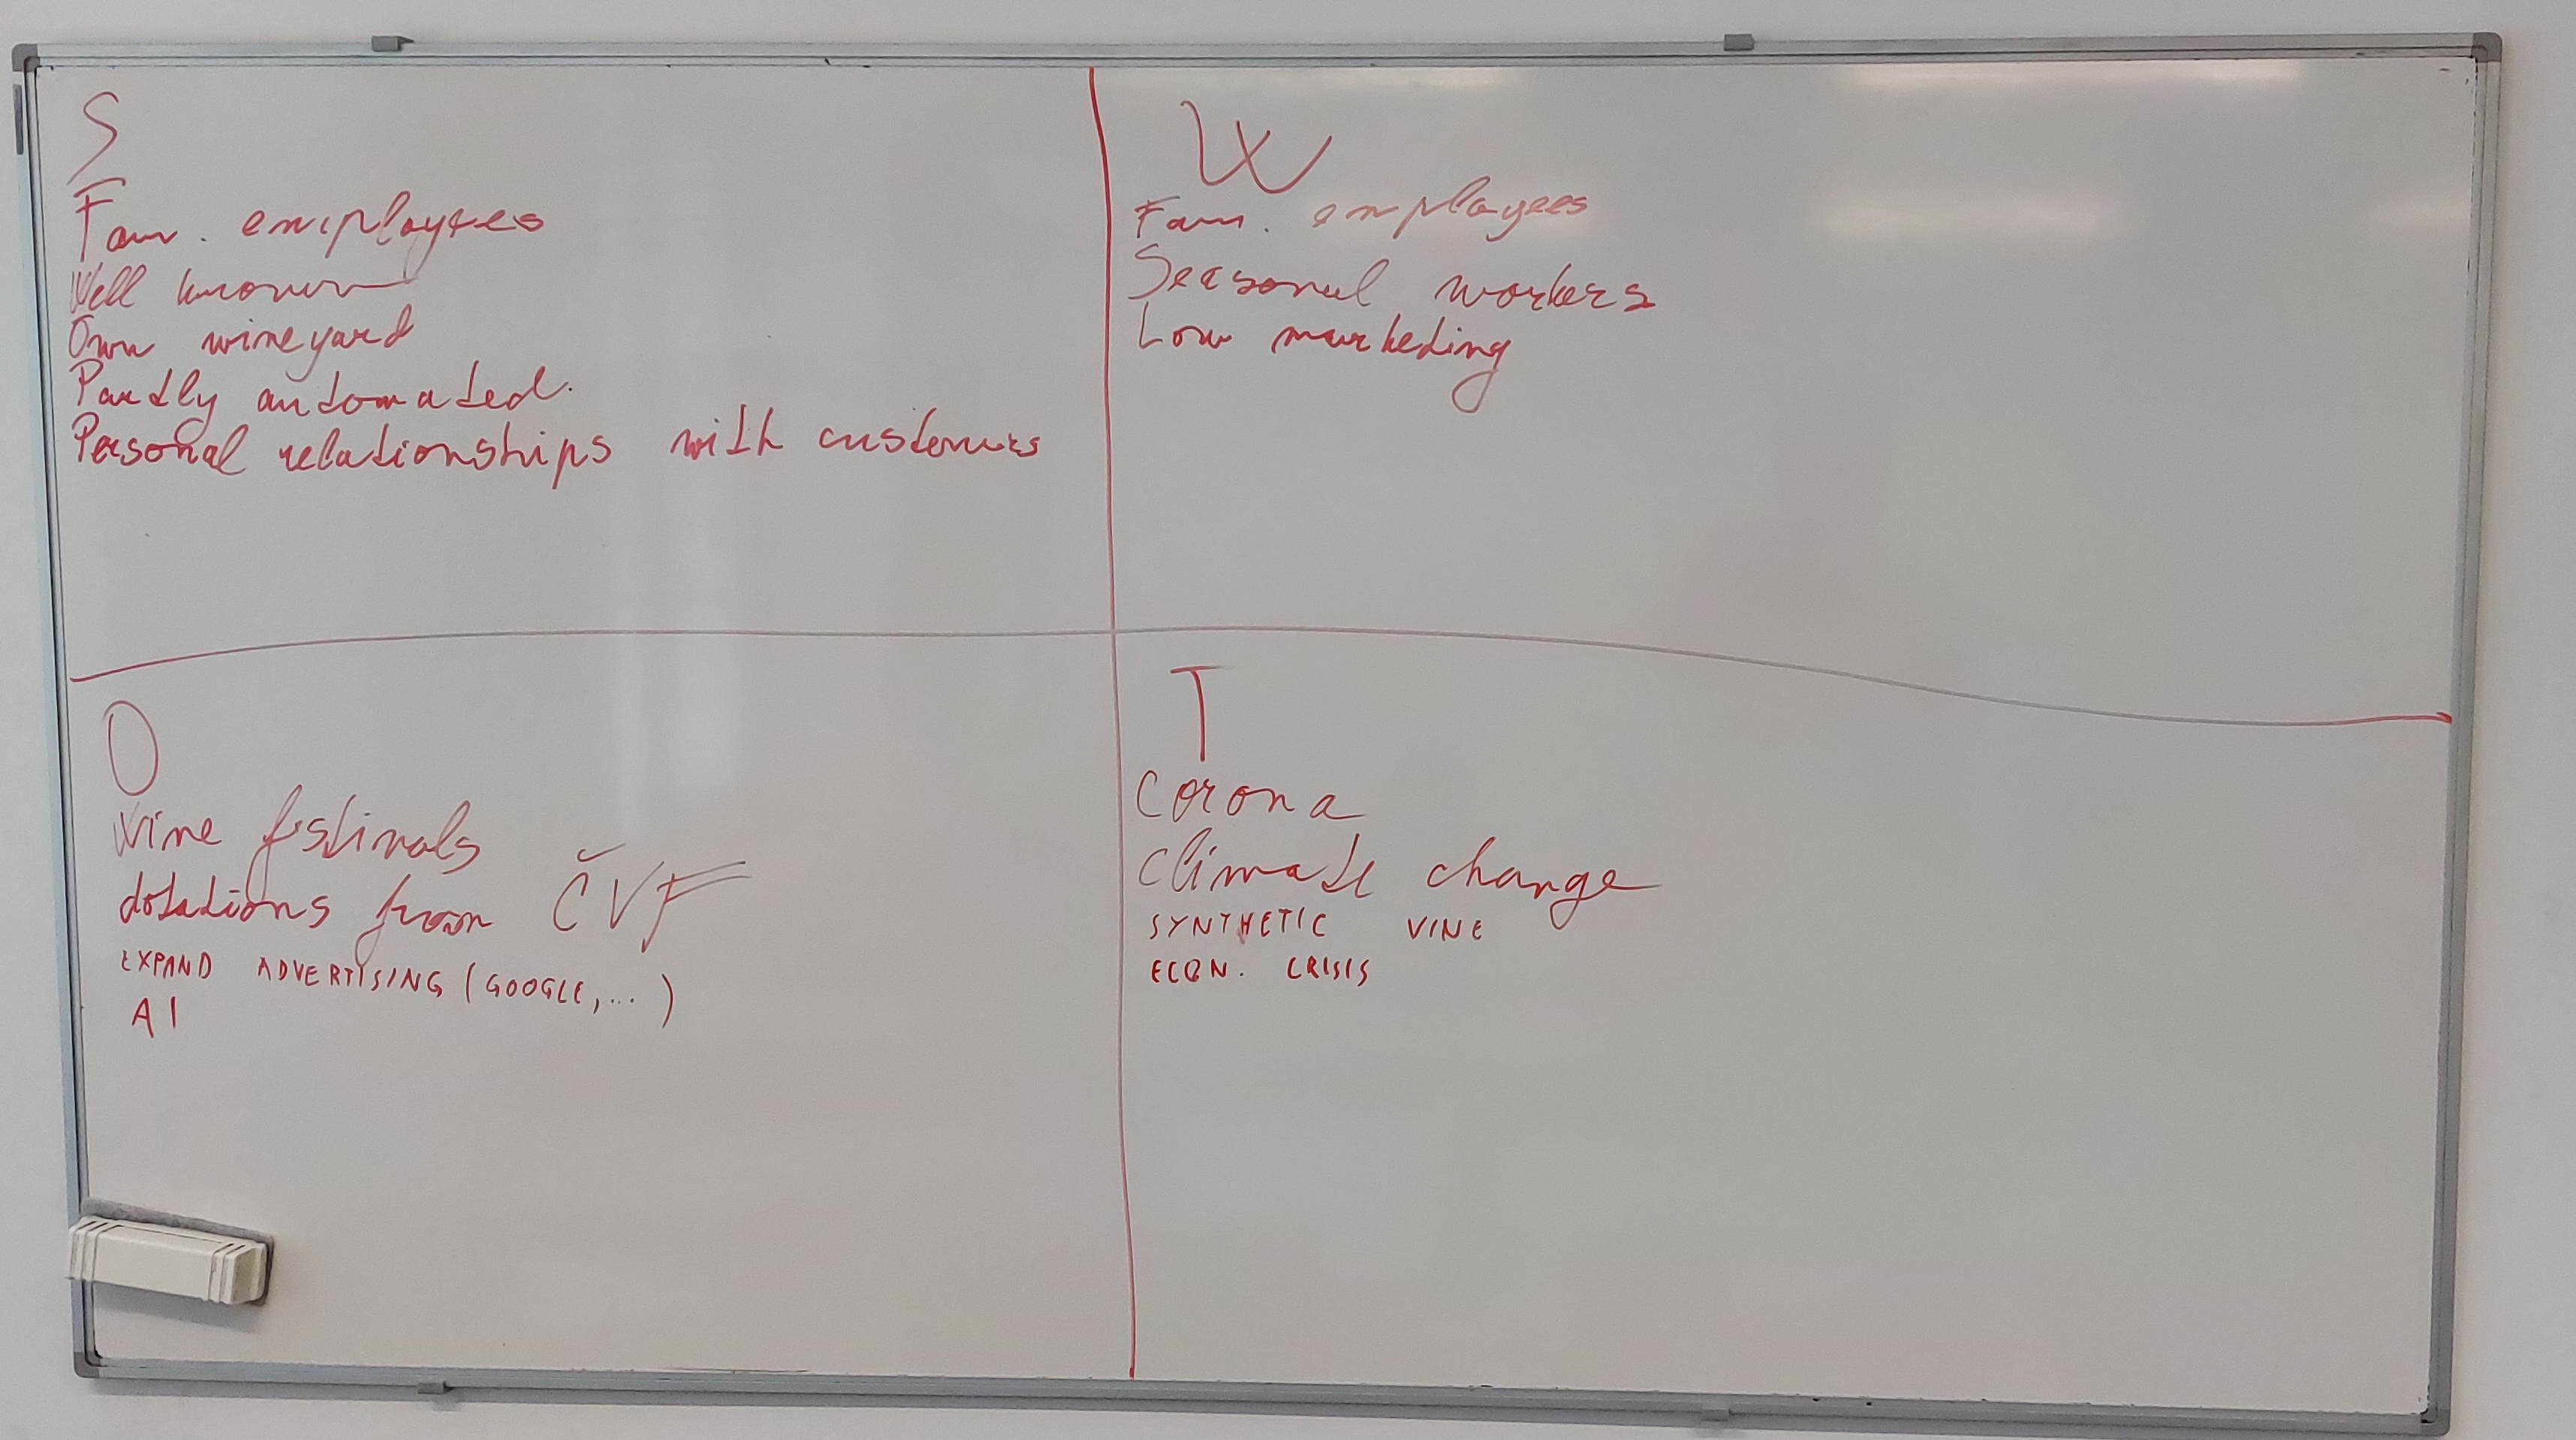 S
Fam. employees
Well known
Own wineyard
Partly automated.
Personal relationships with customers
W
Fam. employees
Seasonal workers
Low marketing
O
Wine festivals
dotations from ČVF
EXPAND ADVERTISING (GOOGLE,...)
AI
T
Corona
Climate change
SYNTHETIC VINE
ECON. CRISIS